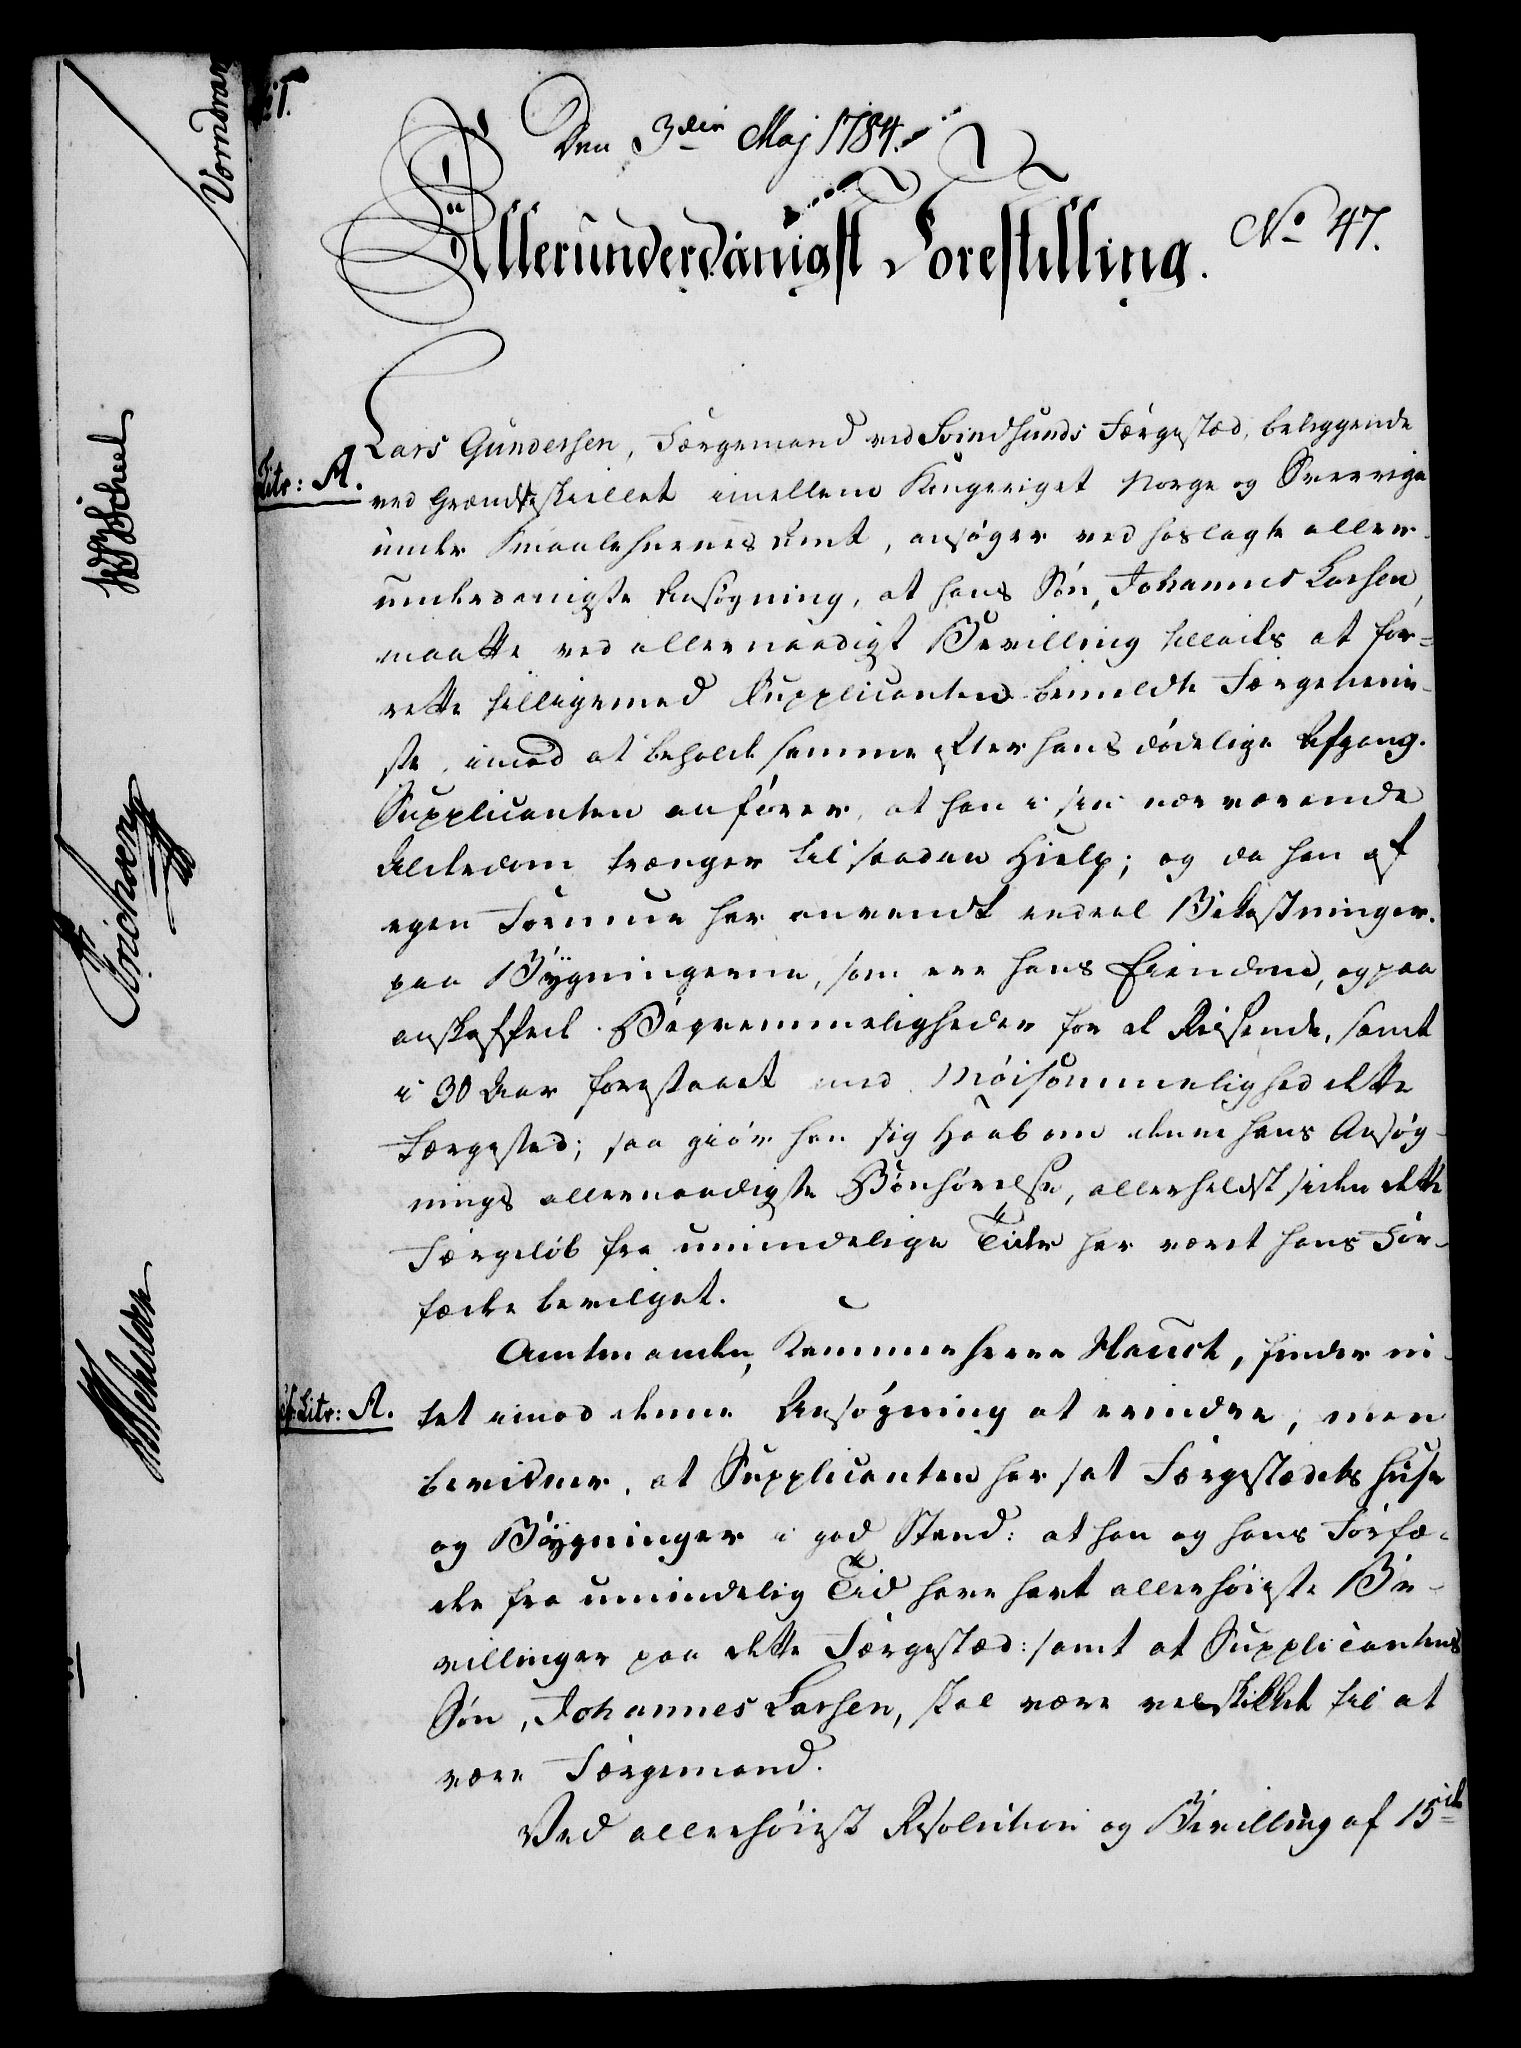 Den 3die Maj 1784.
Allerunderdanigst Forestilling.
No 47.
Litr: A.
Lars Gundersen, Færgemand ved Svindsunds Færgestæd, beliggende
ved Grændseskiellet imellem Kongeriget Norge og Sverrige
under Smaalehnenes Amt, ansøger ved hoslagte aller-
underdanigste Ansøgning, at hans Søn, Johannes Larsen,
maatte ved allernaadigst Bevilling tillades at for-
rette tilligemed Supplicanten bemeldte Færgetiene-
ste, imod at beholde samme efter hans dødelige Afgang.
Supplicanten anfører, at han i sin nærværende
Alderdom trænger til saadan Hielp; og da han af
egen Formue har anvendt endeel Bekostninger
paa Bygningerne, som ere hans Eiendom, og paa
anskaffede Beqvemmeligheder for de Reisende, samt
i 30 Aar forestaaet med Møisommelighed dette
Færgested; saa giør han sig Haab om denne hans Ansøg-
nings allernaadigste Bønhørelse, allerhelst siden dette
Færgeløb fra umindelige Tider har været hans For-
fædre bevilget.
Amtmanden, Kammerherre Hauch, finder in-
cfr. Litr: A.
tet imod denne Ansøgning at erindre, men
bevidner, at Supplicanten har sat Færgestædets Huse
og Bygninger i god Stand: at han og hans Forfæ-
dre fra umindelig Tid have havt allerhøieste Be-
villinger paa dette Færgestæd: samt at Supplicantens
Søn, Johannes Larsen, skal være velskikket til at
være Færgemand.
Ved allerhøiest Resolution og Bevilling af 15de